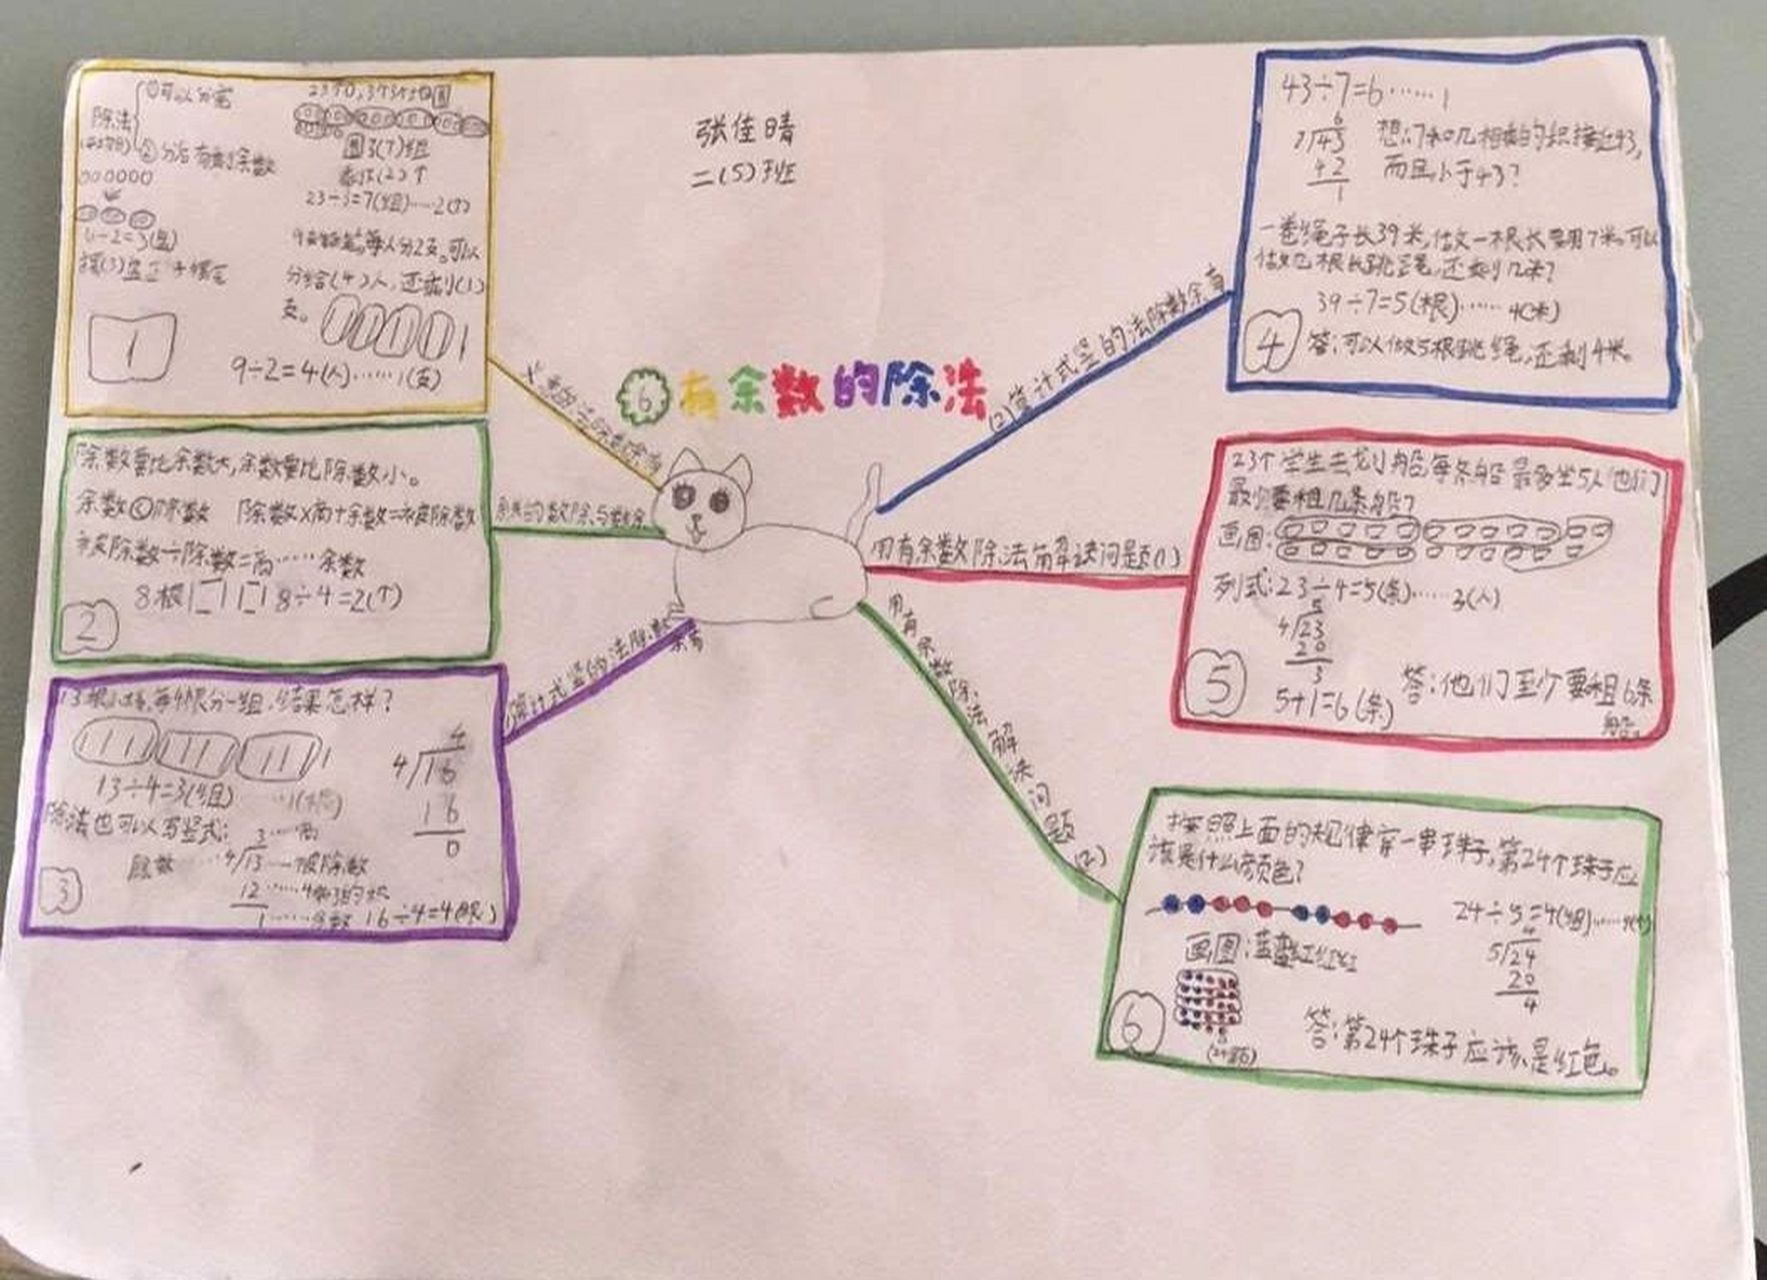 张佳晴
二(5)班
6 有余数的除法
除法
①可以分完
②分后有剩余数
000000
圈3(7)组
还剩(2)个
23÷3=7(组)……2(个)
每人分2支。可以
分给(4)人,还剩(1)
支。
9÷2=4(人)……1(支)
1
除数要比余数大,余数要比除数小。
余数<除数 除数×商+余数=被除数
被除数÷除数=商……余数
8根 8÷4=2(个)
2
每4根分一组,结果怎样?
13÷4=3(组)……1(根)
除法也可以写竖式:
3……商
除数……4/13—被除数
12……
1……余数 16÷4=4(根)
4
4/16
16
0
3
43÷7=6……1
6
7/43
42
1
想:7和几相乘的积接近43,
而且小于43?
一卷绳子长39米,做一根长要用7米。可以
做几根长跳绳,还剩几米?
39÷7=5(根)……4(米)
答:可以做5根跳绳,还剩4米。
4
(2)算计式竖的法除数余有
23个学生去划船每条船最多坐5人他们
最少要租几条船?
画图:
列式:23÷4=5(条)……3(人)
5
4/23
20
3
5+1=6(条)
答:他们至少要租6条
船。
5
用有余数除法解决问题(1)
按照上面的规律穿一串珠子,第24个珠子应
该是什么颜色?
24÷5=4(组)……4(个)
画图:蓝蓝红红红
4
5/24
20
4
答:第24个珠子应该是红色。
6
用有余数除法解决问题(2)